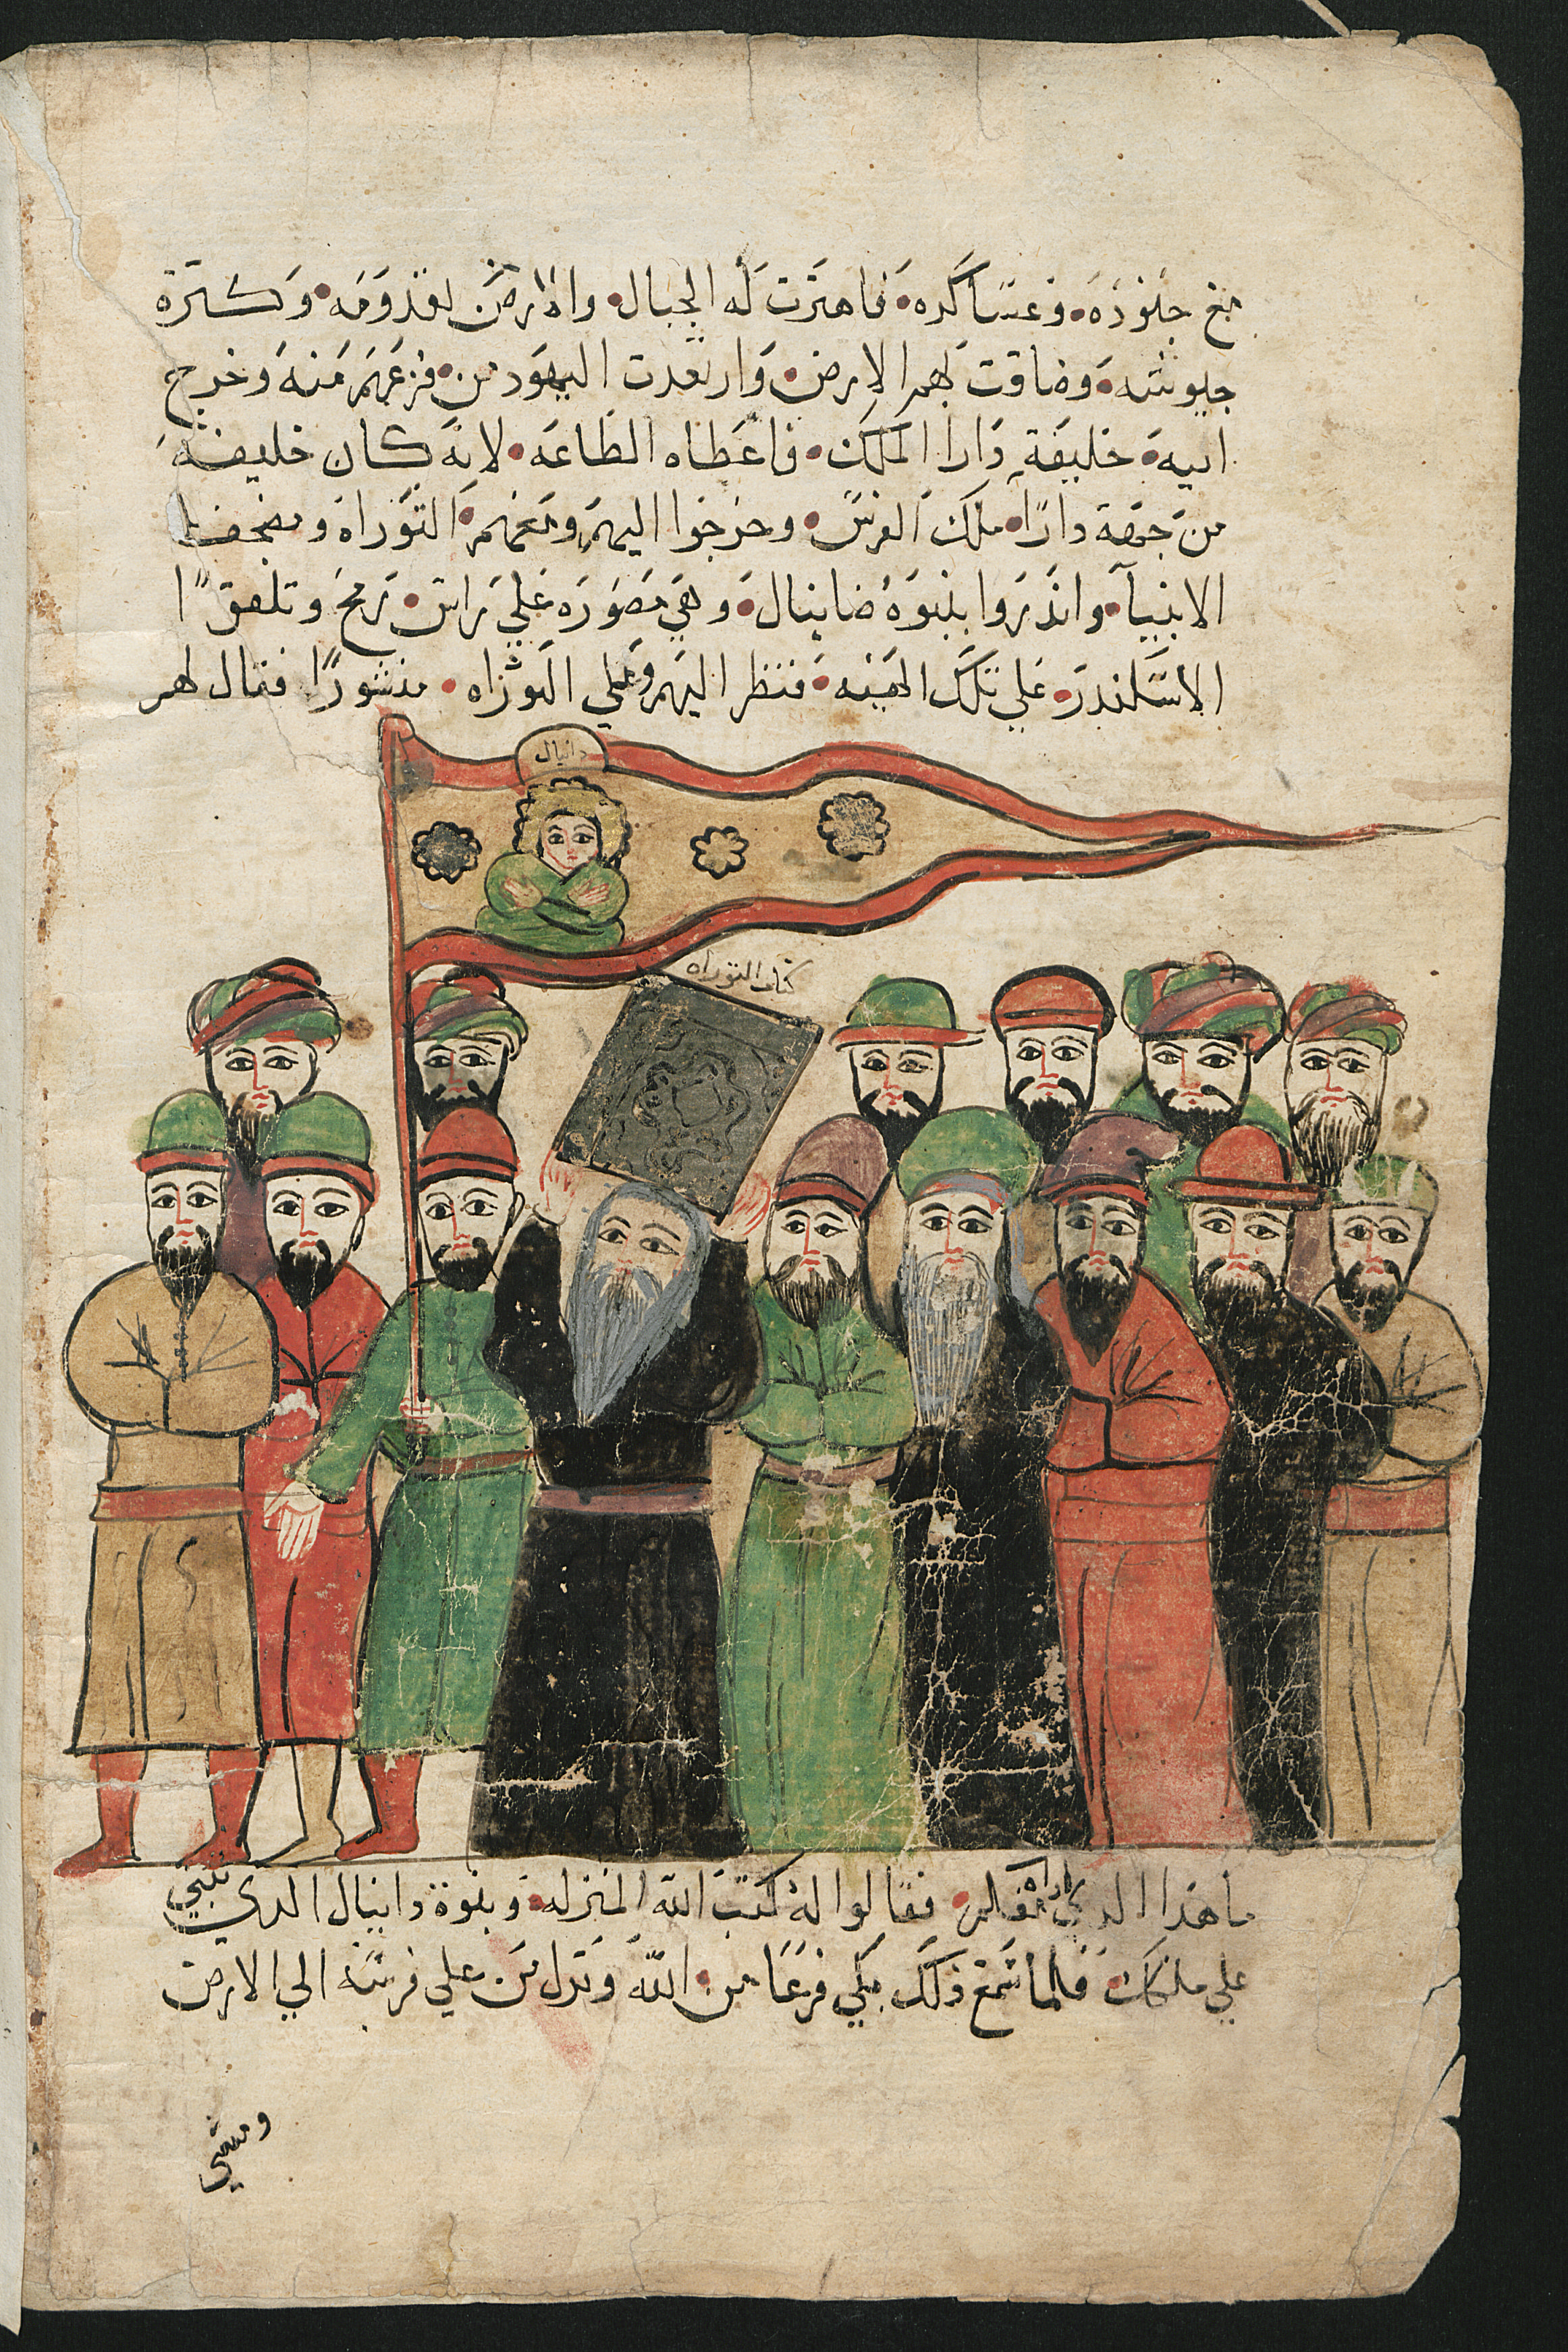 مع جنوده وعساكره فاهتزت له الجبال والارض لقدومه وكترة
جيوشه وضاقت بهم الارض وارتعدت اليهود من فزعهم منه وخرج
اليه خليفة دارا الملك فاعطاه الطاعه لانه كان خليفه
من جهة دارا ملك الفرس وخرجوا اليهم ومعهم التوراه ومصحف
الانبيآ وانذروا بنبوة ضانيال وهي مصوره علي راس رمح وتلقوا
الاسكندر على تلك الهيئه فنظر اليهم وعلي التوراه منشورا فقال لهم
دانيال
كتاب التوراه
ما هذا الدي اراه معكم فقالوا له كتب الله المنزله ونبوة دانيال الدي تنبي
علي ملكك فلما سمع ذلك بكي فزعا من الله ونزل من علي فرسه الي الارض
ومشي